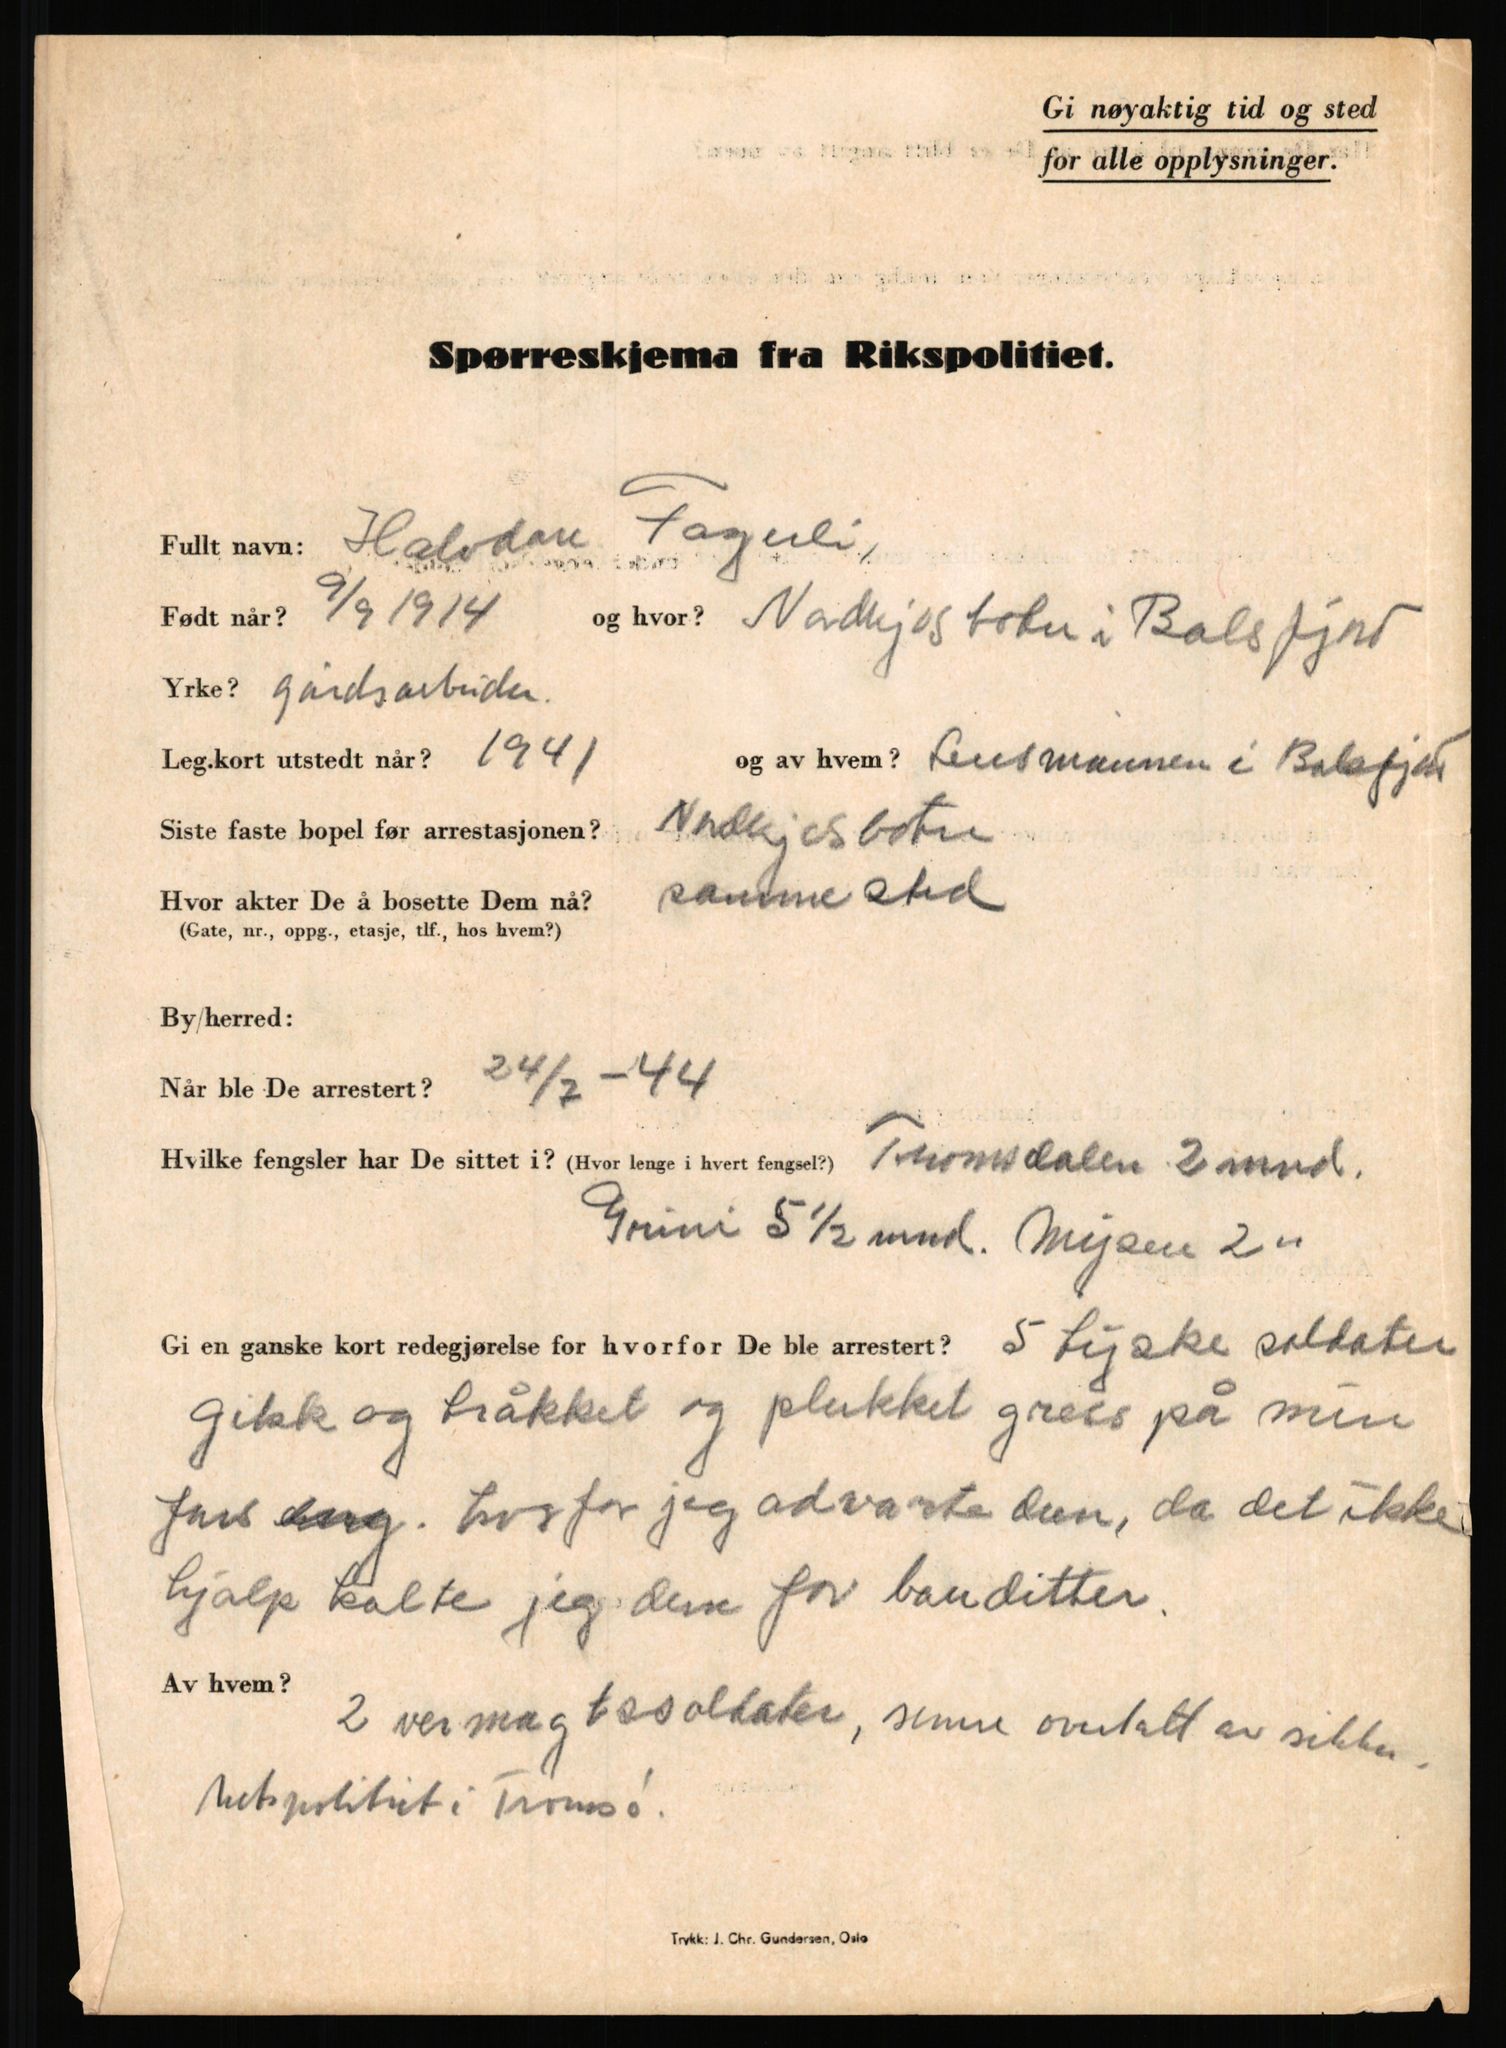 Gi nøyaktig tid og sted
for alle opplysninger.
Spørreskjema fra Rikspolitiet.
Fullt navn: Halvdan Fagerli,
Født når? 9/9 1914 og hvor? Nordkjosbotn i Balsfjord
Yrke? gårdsarbeider.
Leg.kort utstedt når? 1941 og av hvem? Lensmannen i Balsfjord
Siste faste bopel før arrestasjonen? Nordkjosbotn
Hvor akter De å bosette Dem nå? samme sted
(Gate, nr., oppg., etasje, tlf., hos hvem?)
By/herred:
Når ble De arrestert? 24/7 -44
Hvilke fengsler har De sittet i? (Hvor lenge i hvert fengsel?) Tromsdalen 2 mnd.
Grini 5 1/2 mnd. Mysen 2 "
Gi en ganske kort redegjørelse for hvorfor De ble arrestert? 5 tyske soldater
gikk og tråkket og plukket gress på min
fars eng. hvorfor jeg advarte dem, da det ikke
hjalp kalte jeg dem for banditter.
Av hvem? 2 vermagtssoldater, senere overtatt av sikker-
hetspolitiet i Tromsø.
Trykk: J. Chr. Gundersen, Oslo